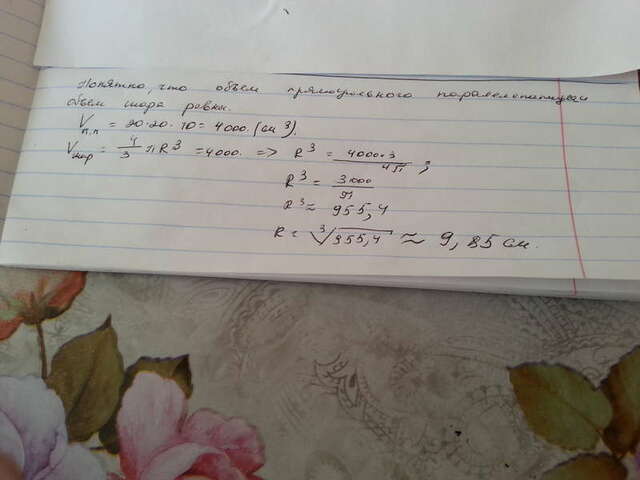 Понятно, что объем прямоугольного параллелепипеда и
объем шара равны.
Vп.п = 20·20·10 = 4000 (см³).
Vшар = 4/3 πR³ = 4000. => R³ = 4000·3/4π ;
R³ = 3000/π
R³ ≈ 955,4
R = ³√955,4 ≈ 9,85 см.